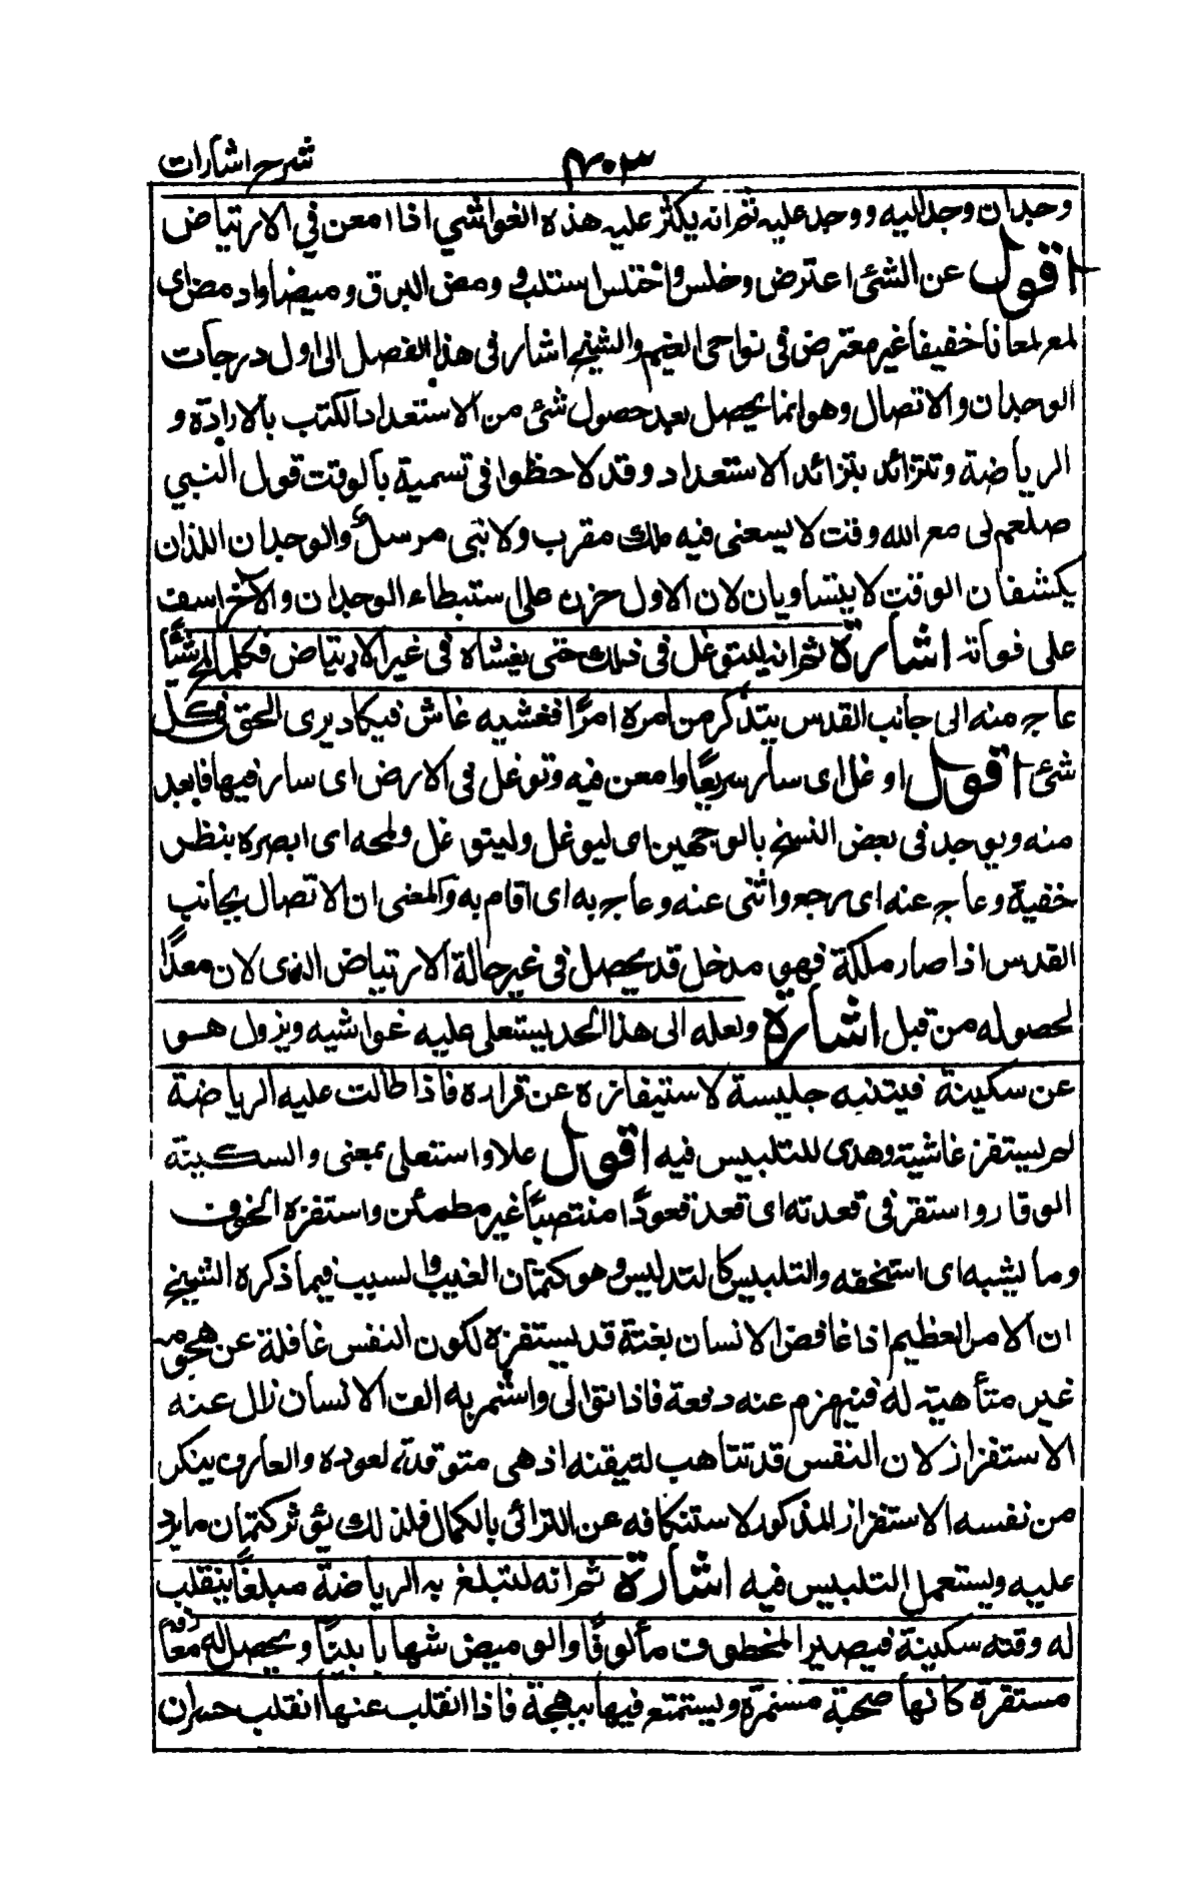 شرح اشارات ٤٠٣
وجدان وجد اليه ووجد عليه ثم انه يكثر عليه هذه الغواشي اذا امعن في الارتياض
اقول عن الشئ اعترض وخلس واختلس استلب و ومض البرق وميضا واومض اى
لمع لمعانا خفيفا غير معترض فى نواحى الغيم والشيخ اشار فى هذا الفصل الى اول درجات
الوجدان والاتصال وهو انما يحصل بعد حصول شئ من الاستعداد المكتسب بالارادة و
الرياضة وتتزائد بتزائد الاستعداد وقد لاحظوا فى تسمية بالوقت قول النبي
صلعم لى مع الله وقت لا يسعنى فيه ملك مقرب ولا نبى مرسل والوجدان اللذان
يكشفان الوقت لا يتساويان لان الاول حزن على استبطاء الوجدان والآخر اسف
على فواته اشارة ثم انه ليتوغل فى ذلك حتى يغشاه فى غير الارتياض فكلما لمح شيئا
عاج منه الى جانب القدس يتذكر من امره امرا فغشيه غاش فيكاد يرى الحق فى كل
شئ اقول اوغل اى سار سريعا وامعن فيه وتوغل فى الارض اى سار فيها فابعد
منه ويوجد فى بعض النسخ بالوجهين اى ليوغل وليتوغل ولمحه اى ابصره بنظر
خفية وعاج عنه اى رجع وانثنى عنه وعاج به اى اقام به والمعنى ان الاتصال بجانب
القدس اذا صار ملكة فهو مدخل قد يحصل فى غير حالة الارتياض الذى لان معدا
لحصوله من قبل اشارة ولعله الى هذا الحد يستعلى عليه غواشيه ويزول هو
عن سكينة فيتنبه جليسة لاستيفازه عن قراره فاذا طالت عليه الرياضة
لم يستفز غاشية وهدى للتلبيس فيه اقول علا واستعلى بمعنى والسكينة
الوقار واستفز فى قعدته اى قعد قعودا منتصبا غير مطمئن واستفزه الخوف
وما يشبه اى استخفه والتلبيس كالتدليس وهو كتمان العيب والسبب فيما ذكره الشيخ
ان الامر العظيم اذا غافض الانسان بغتة قد يستفزه لكون النفس غافلة عن هجومه
غير متأهبة له فينهزم عنه دفعة فاذا توالى واستمر به الف الانسان زال عنه
الاستفزاز لان النفس قد تتاهب لتيقنه اذ هى متوقدة لعوده والعارف ينكر
من نفسه الاستفزاز المذكور لاستنكافه عن الترائى بالكمال فلذلك يؤثر كتمان ما يرد
عليه ويستعمل التلبيس فيه اشارة ثم انه لتبلغ به الرياضة مبلغا ينقلب
له وقته سكينة فيصير المخطوف مألوفا والوميض شهابا بينا ويحصل له معارفة
مستقرة كانها صحبة مستمرة ويستمتع فيها ببهجة فاذا انقلب عنها انقلب حيران